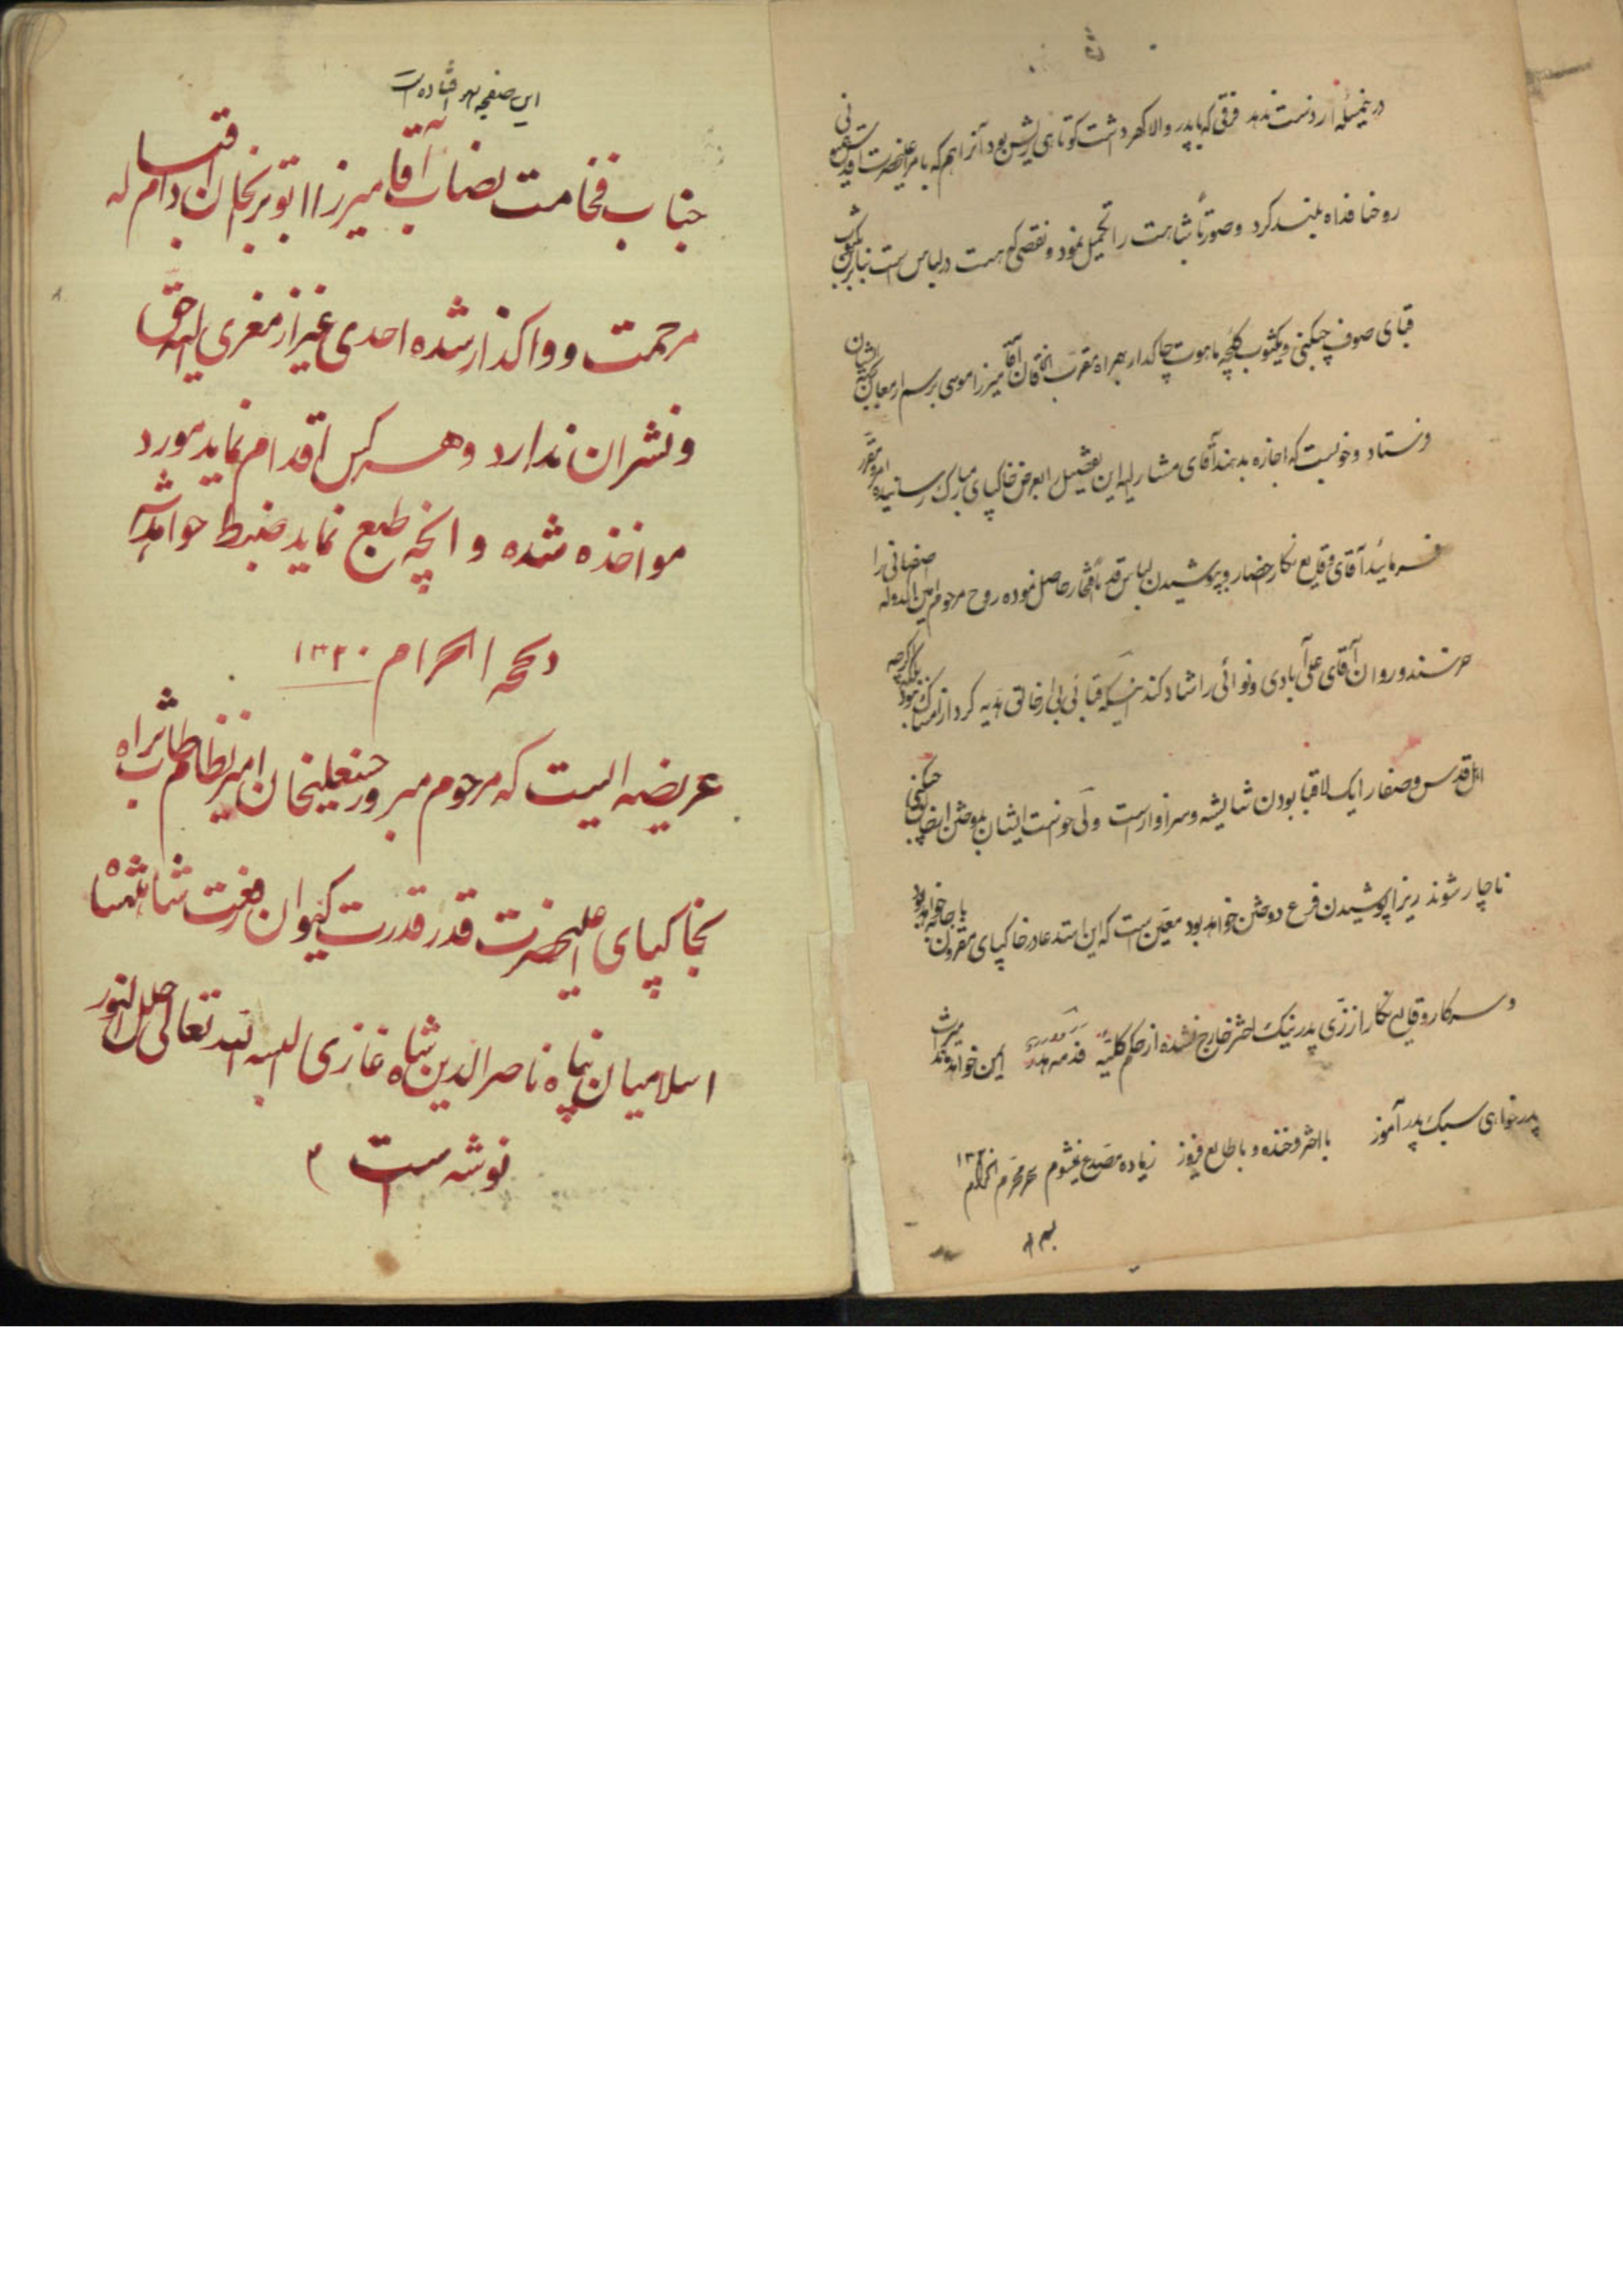 در این مسئله از دست ندهد فرقی که با پدر والا گهر داشت کوتاهی ریش بود آنرا هم که بامر اعلیحضرت اقدس
روحنا فداه بلند کرد و صورتاً شباهت را تکمیل نمود و نقصی که هست در لباس است بنابراین یکثوب
قبای صوف چپکنی و یکثوب کلیچه ماهوت چاکدار بهمراه مقرب الخاقان آقا میرزا موسی برسم ارمغان
فرستاد و خواست که اجازه بدهند آقای مشارالیه این تفصیل را بعرض خاکپای مبارک رسانیده امر و مقرر
فرمایند آقای وقایع نگار احضار و بپوشیدن لباس قدما افتخار حاصل نموده روح مرحوم امین الدوله اصفهانی را
خرسند و روان آقای علی آبادی و نوائی را شاد کند اینکه قبائی بی ارخالق هدیه کرد از امساک نبود بلکه اگرچه
اهل قدس و صفا را یک لا قبا بودن شایسته و سزاوار است ولی خواست ایشان بدوختن ارخالق چپکنی
ناچار شوند زیرا پوشیدن فرع دوختن خواهد بود معین است که این استدعا در خاکپای مقرون باجابت خواهد بود
و سرکار وقایع نگار از زی پدر نیک اختر خارج نشده از حکم کلیه
پدر خواهی سبک پدر آموز با اختر فرخنده و با طالع فیروز زیاده مصدع نمیشوم محرم الحرام ۱۳۲۰
این صفحه سهو افتاده است
جناب فخامت نصاب آقا میرزا ابوترابخان دام اقباله
مرحمت و واگذار شده احدی غیر از معزی الیه حق
و نشر ان ندارد و هر کس اقدام نماید مورد
مواخذه شده و انچه طبع نماید ضبط خواهد شد
ذیحجه الحرام ۱۳۲۰
عریضه ایست که مرحوم مبرور حسنعلیخان امیر نظام طاب ثراه
بخاکپای اعلیحضرت قدر قدرت کیوان رفعت شاهنشاه
اسلامیان پناه ناصرالدین شاه غازی البسه الله تعالی حلل النور
نوشته است ۳